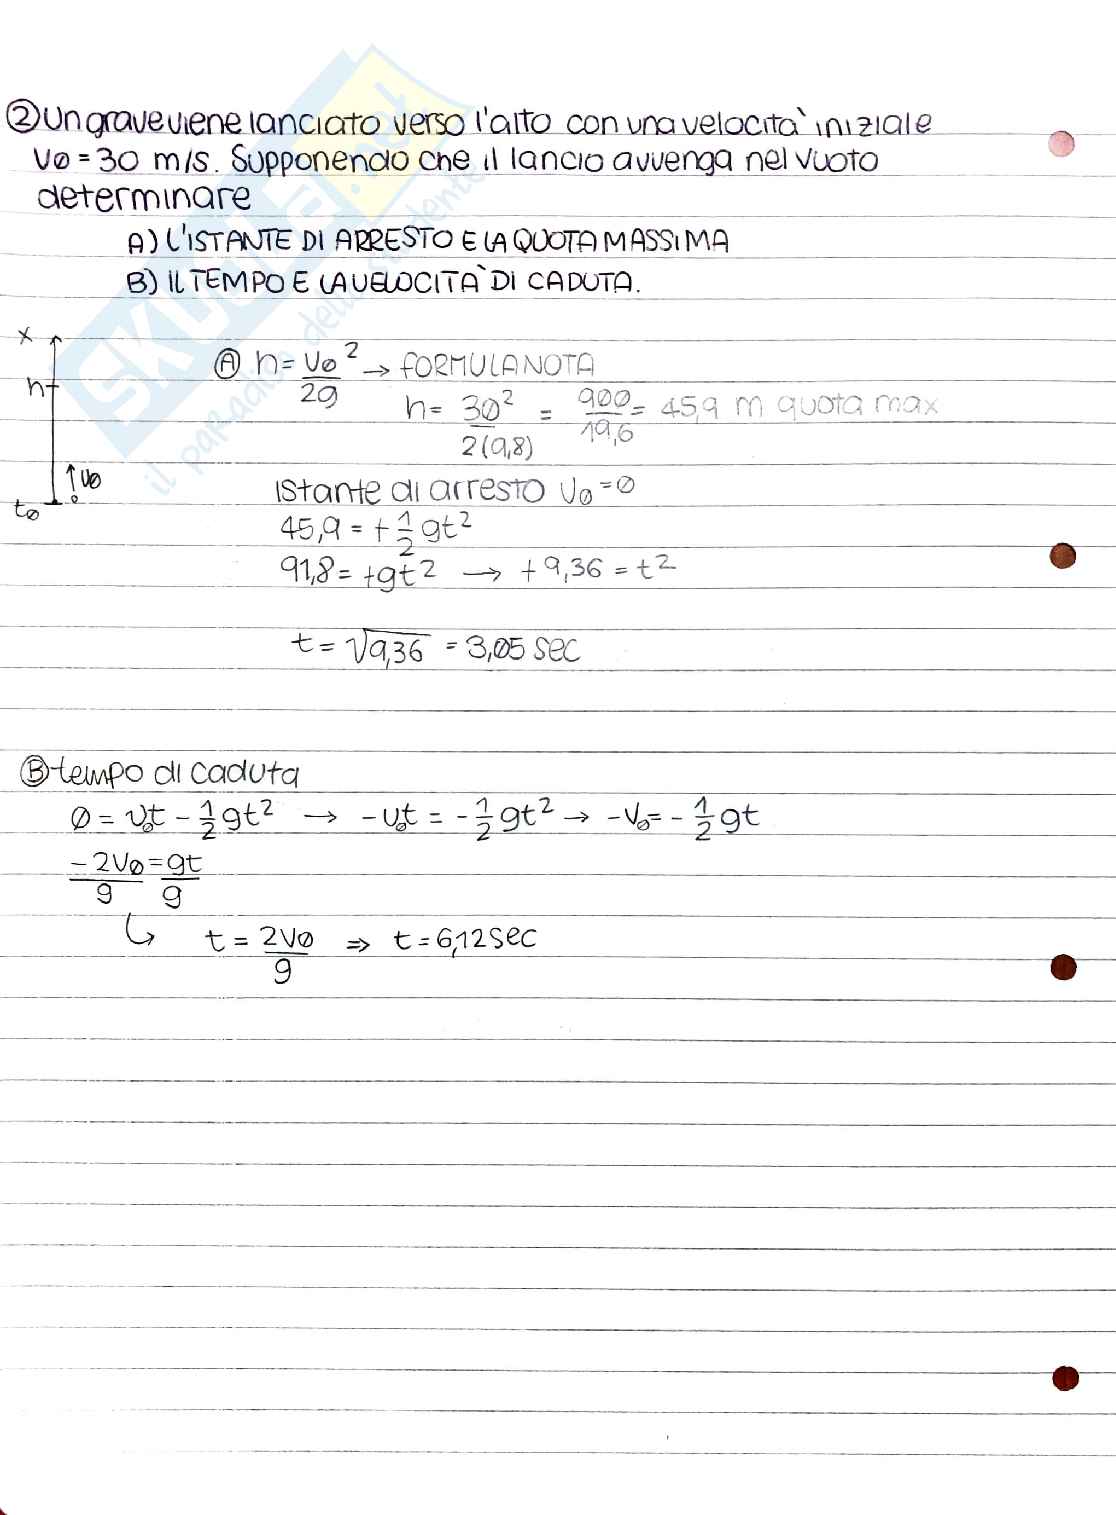 ② Un grave viene lanciato verso l'alto con una velocità iniziale
Vø = 30 m/s. Supponendo che il lancio avvenga nel vuoto
determinare
A) L'ISTANTE DI ARRESTO E LA QUOTA MASSIMA
B) IL TEMPO E LA VELOCITÀ DI CADUTA.
x
h
↑ Vø
tø
Ⓐ h = Vø²/2g → FORMULA NOTA
h = 3ø²/2(9,8) = 9øø/19,6 = 45,9 m quota max
istante di arresto Vø = ø
45,9 = + 1/2 gt²
91,8 = +gt² → +9,36 = t²
t = √9,36 = 3,ø5 sec
Ⓑ tempo di caduta
ø = vøt - 1/2 gt² → -vøt = - 1/2 gt² → -Vø = - 1/2 gt
-2Vø/g = gt/g
↳ t = 2Vø/g ⇒ t = 6,12 sec
SKUOLA.net
il paradiso dello studente